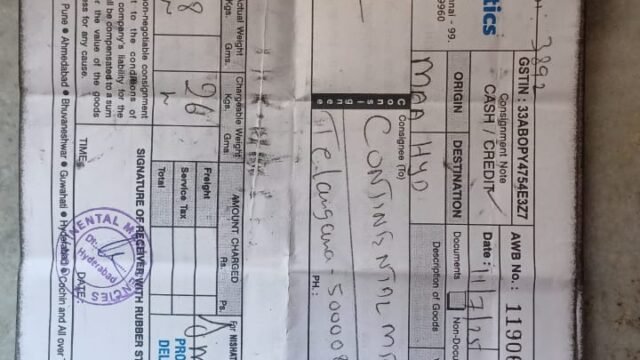 3892
tics
nai - 99.
9960
GSTIN : 33ABOPY4754E3Z7
Consignment Note
CASH / CREDIT
AWB No. : 11906
Date : 11/7/25
ORIGIN
DESTINATION
Documents
Non-Docu
Description of Goods
MAA
HYD
Consignee
Consignee (To)
CONTINENTAL
Telangana - 50000
PH.:
Actual Weight
Kgs.
Gms.
Chargeable Weight
Kgs.
Gms.
8
26
AMOUNT CHARGED
Rs.
Ps.
Freight
Service Tax
Total
For NISHAT
PRO
DEL
non-negotiable consignment
t to the conditions of
company's liability for the
ll be compensated to a sum
r the value of the goods
ess for any cause.
SIGNATURE OF RECEIVER WITH RUBBER ST
TIME:
DATE:
Hyderabad
Pune ● Ahmedabad ● Bhuvaneshwar ● Guwahati ● Hyderabad ● Cochin and All over